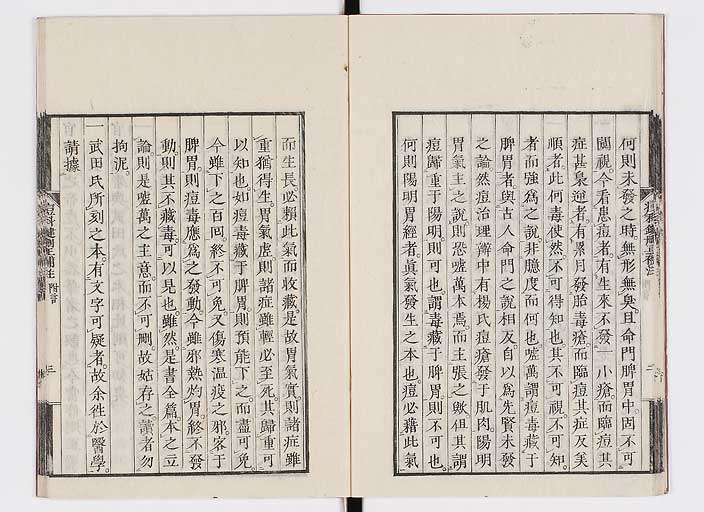 何則未發之時無形無臭且命門脾胃中固不可
闚視今看患痘者有生來不發一小瘡而臨痘其
症甚梟逆者有累月發胎毒瘡而臨痘其症反美
順者此何毒使然不可得知也其不可視不可知
者而強爲之說非臆度而何也噓萬謂痘毒藏于
脾胃者與古人命門之說相反自以爲先賢未發
之論然痘治理辨中有楊氏痘瘡發于肌肉陽明
胃氣主之說則恐噓萬本焉而主張之歟但其謂
痘歸重于陽明則可也謂毒藏于脾胃則不可也
何則陽明胃經者眞氣發生之本也痘必藉此氣
而生長必賴此氣而收藏是故胃氣實則諸症雖
重猶得生胃氣虛則諸症雖輕必至死其歸重可
以知也如痘毒藏于脾胃則預能下之而盡可免
今雖下之百回終不可免又傷寒温疫之邪客于
脾胃則痘毒應爲之發動今雖邪熱灼胃終不發
動則其不藏毒可以是也雖然是書全篇本之立
論則是噓萬之主意而不可刪故姑存之讀者勿
拘泥
一武田氏所刻之本有文字可疑者故余徃於醫學
請據
痘科鍵刪正補注 附言 三